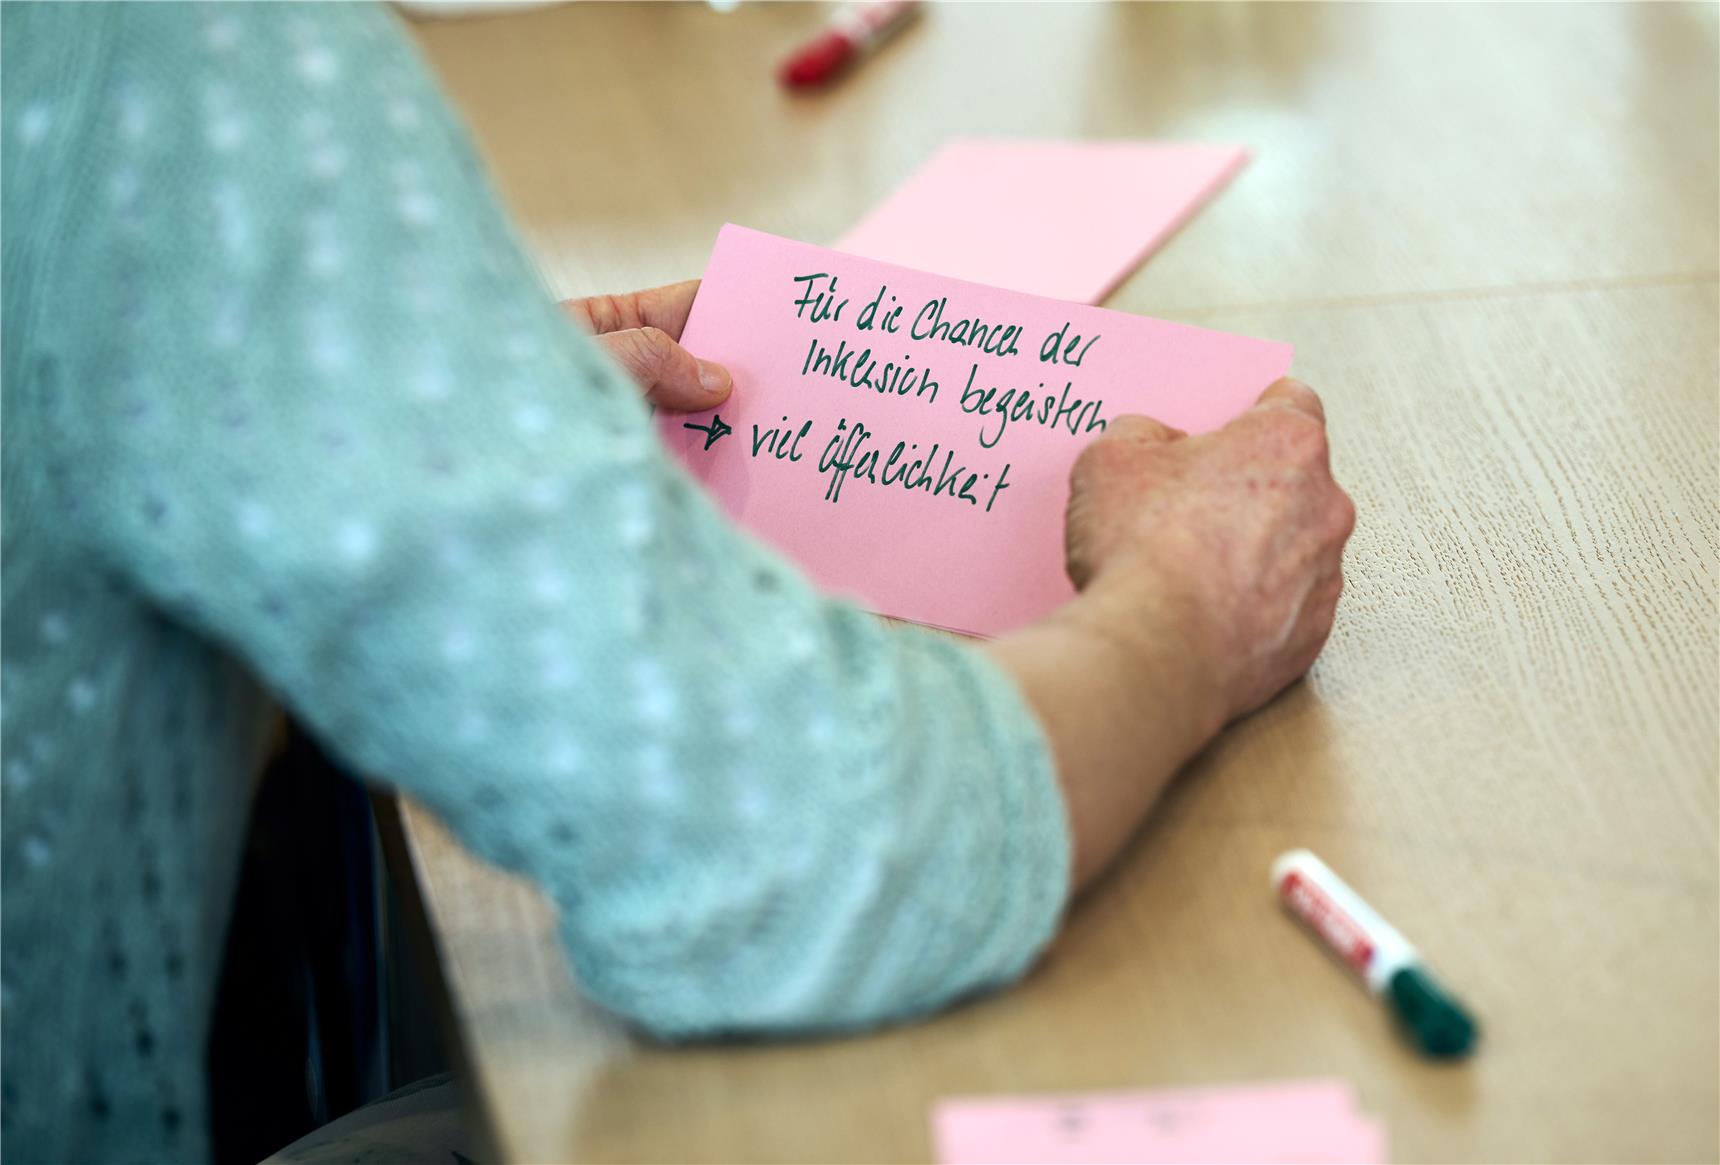 Für die Chancen der
Inklusion begeistern
→ viel öffenlichkeit